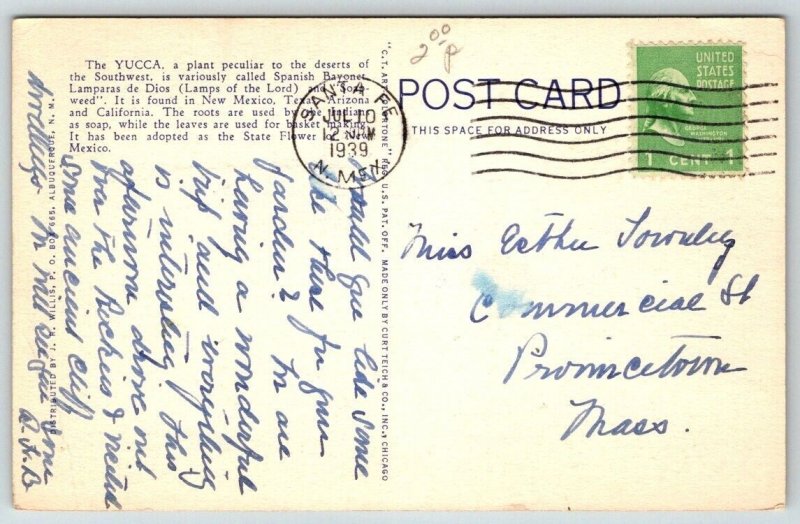 The YUCCA, a plant peculiar to the deserts of
the Southwest, is variously called Spanish Bayonet,
Lamparas de Dios (Lamps of the Lord) and
weed". It is found in New Mexico, Texas, Arizona
and California. The roots are used by the Indians
as soap, while the leaves are used for basket making.
It has been adopted as the State Flower
Mexico.
2 00
P
SANTA FE
JUL 10
1939
N. MEX.
POST CARD
THIS SPACE FOR ADDRESS ONLY
UNITED
STATES
POSTAGE
GEORGE
WASHINGTON
1 CENT 1
"C.T. ART-COLORTONE" REG. U.S. PAT. OFF. MADE ONLY BY CURT TEICH & CO., INC., CHICAGO
DISTRIBUTED BY J. R. WILLIS, P. O. BOX 665, ALBUQUERQUE, N. M.
like some
these for your
garden? We are
having a wonderful
trip and everything
is interesting. This
afternoon drove out
the Rockies & visited
some ancient cliff
dwellings. We will see you soon
Miss Esther Townley
Commercial St
Provincetown
Mass.